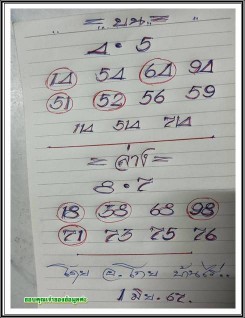 = บน =
4 · 5
14 54 64 94
51 52 56 59
114 514 714
= ล่าง =
8 · 7
18 58 68 98
71 73 75 76
โดย อ.โทย
1 มิย. 6